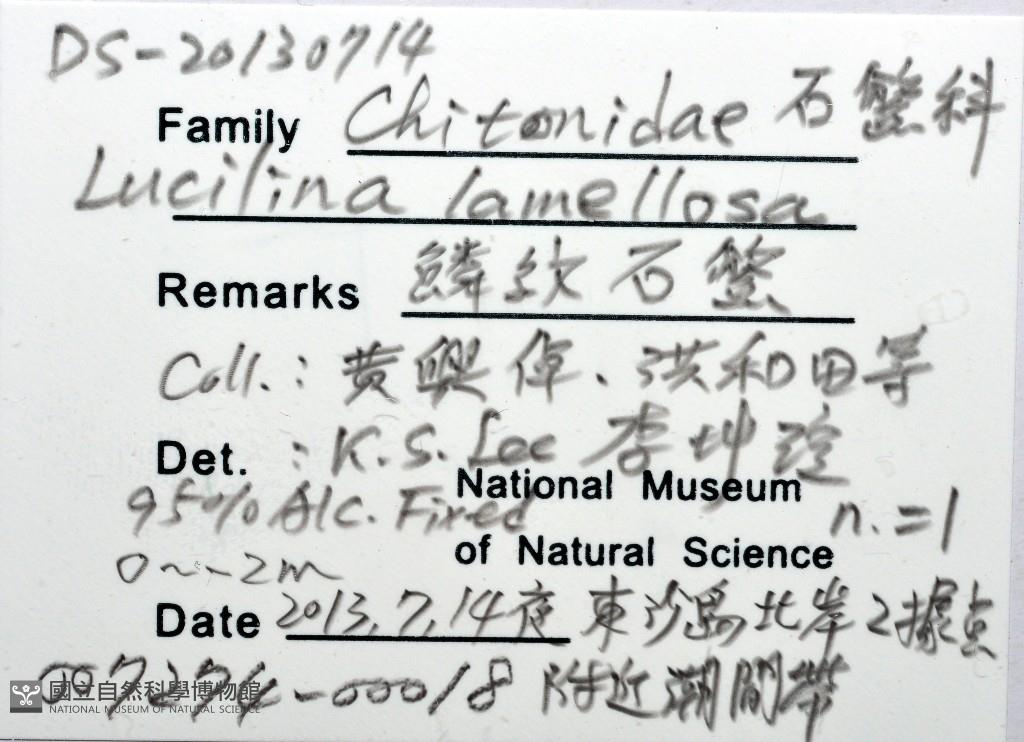 DS-20130714
Family Chitonidae 石鱉科
Lucilina lamellosa
Remarks 鱗紋石鱉
Coll.: 黃興倬、洪和田等
Det. : K.S. Lee 李坤瑄
National Museum
95% Alc. Fixed n.=1
of Natural Science
0~-2m
Date 2013.7.14夜 東沙島北岸2據点
-00018 附近潮間帶
國立自然科學博物館
NATIONAL MUSEUM OF NATURAL SCIENCE